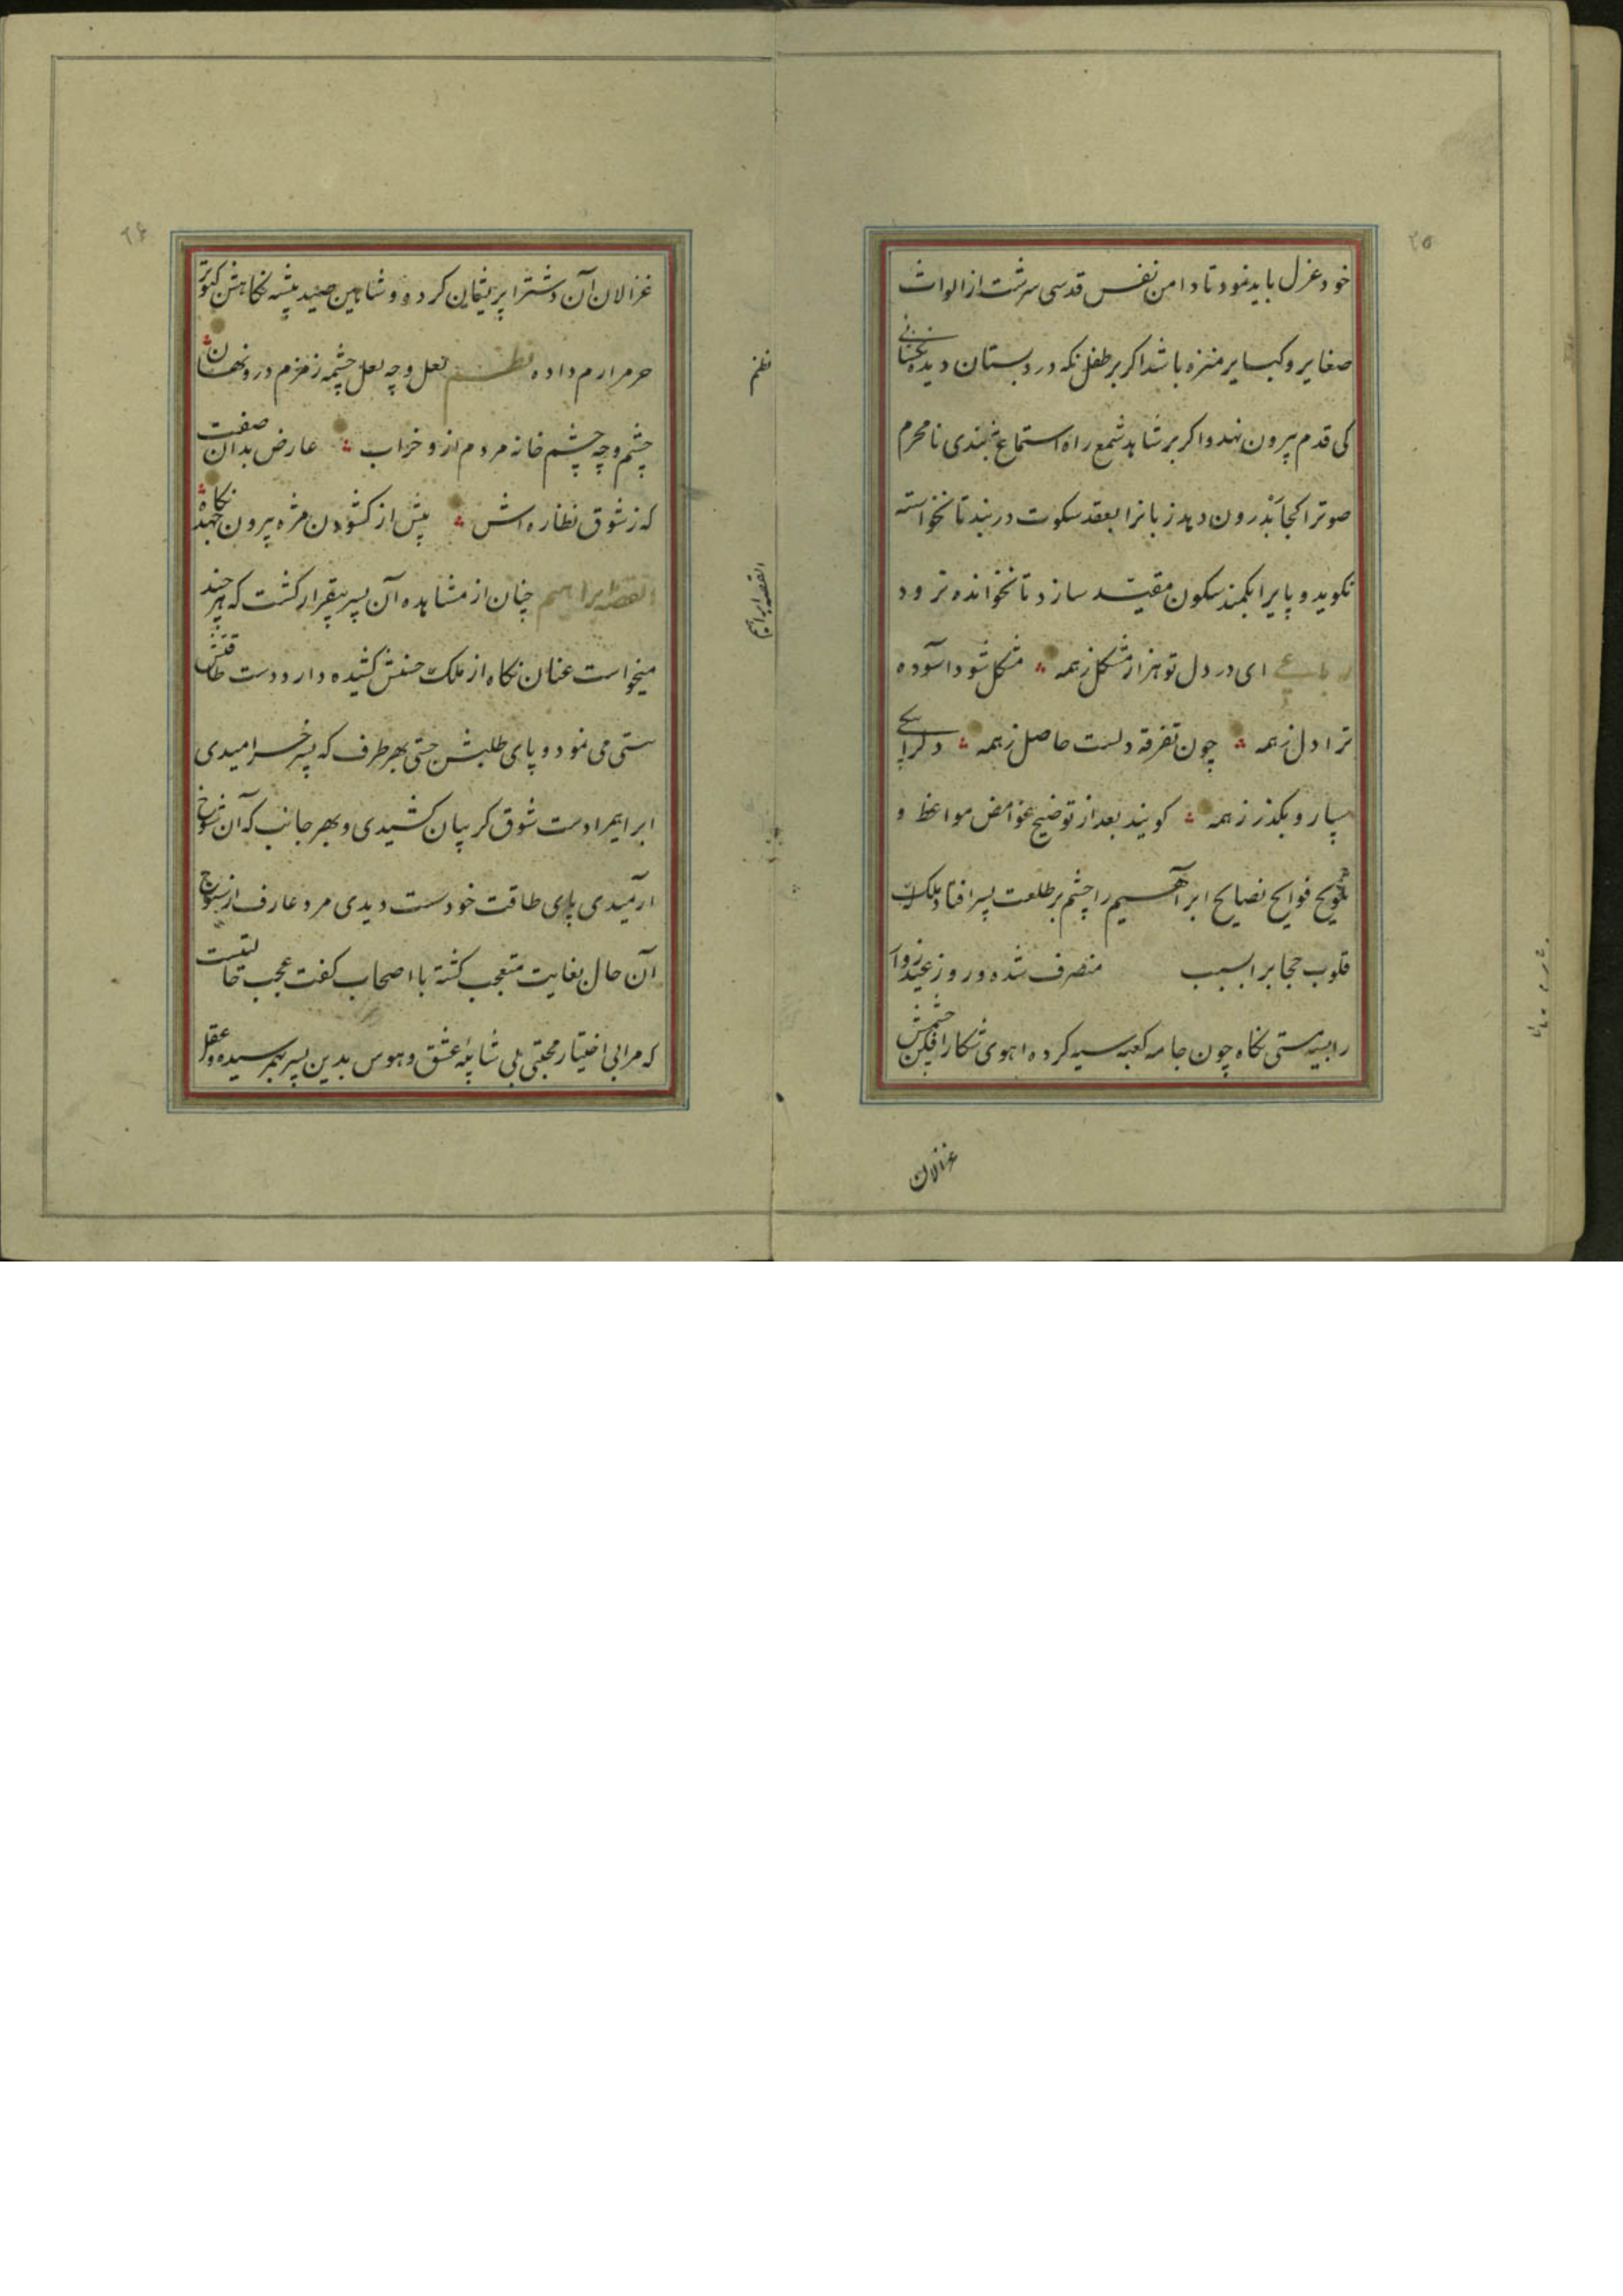 ۲۵
خود عزل باید نمود تا دامن نفس قدسی سرشت از الواث
صغایر و کبایر منزه باشد اکر بر طفل نکه در دبستان دیده نحشانی
کی قدم بیرون نهد و اکر بر شاهد شمع راه استماع نبندی نامحرم
صوترا کجا بدرون دهد زبانرا بعقد سکوت دربند تا نخواسته
نکوید و پایرا بکمند سکون مقید سازد تا نخوانده نرود
رباعی ای در دل تو هزار مشکل ز همه مشکل شود آسوده
ترا دل ز همه چون تفرقه دلست حاصل ز همه
بسپار و بکذر ز همه کویند بعد از توضیح غوامض مواعظ و
تلویح فوایح نصایح ابراهیم را چشم بر طلعت پسر افتاد ملک
قلوب حجابرا بسبب منصرف شده و روز عید زوار
را بسیه مستی نکاه چون جامه کعبه سیه کرده اهوی شکار افکن چشمش
غزلان
۲۶
غزالان آن دشترا پریشان کرده و شاهین صید پیشه نکاهش کبوتر
حرمرا رم داده نظم لعل و چه لعل چشمه زمزم درو نهان
چشم و چه چشم خانه مردم ازو خراب عارض بدان صفت
که ز شوق نظاره اش پیش از کشودن مژه بیرون جهد نکاه
القصه ابراهیم چنان از مشاهده آن پسر بیقرار کشت که هر چند
میخواست عنان نکاه از ملک حسنش کشیده دارد دست طاقتش
سستی می نمود و پای طلبش حتی بهر طرف که پسر خرامیدی
ابراهیمرا دست شوق کریبان کشیدی و بهر جانب که آن شوخ
ارمیدی پای طاقت خود سست دیدی مرد عارف از سنوح
آن حال بغایت متعجب کشته با اصحاب کفت عجب حالتیست
که مرا بی اختیار محبتی بی شایبه عشق و هوس بدین پسر بهم رسیده و عقل
نظم
القصه ابراهیم